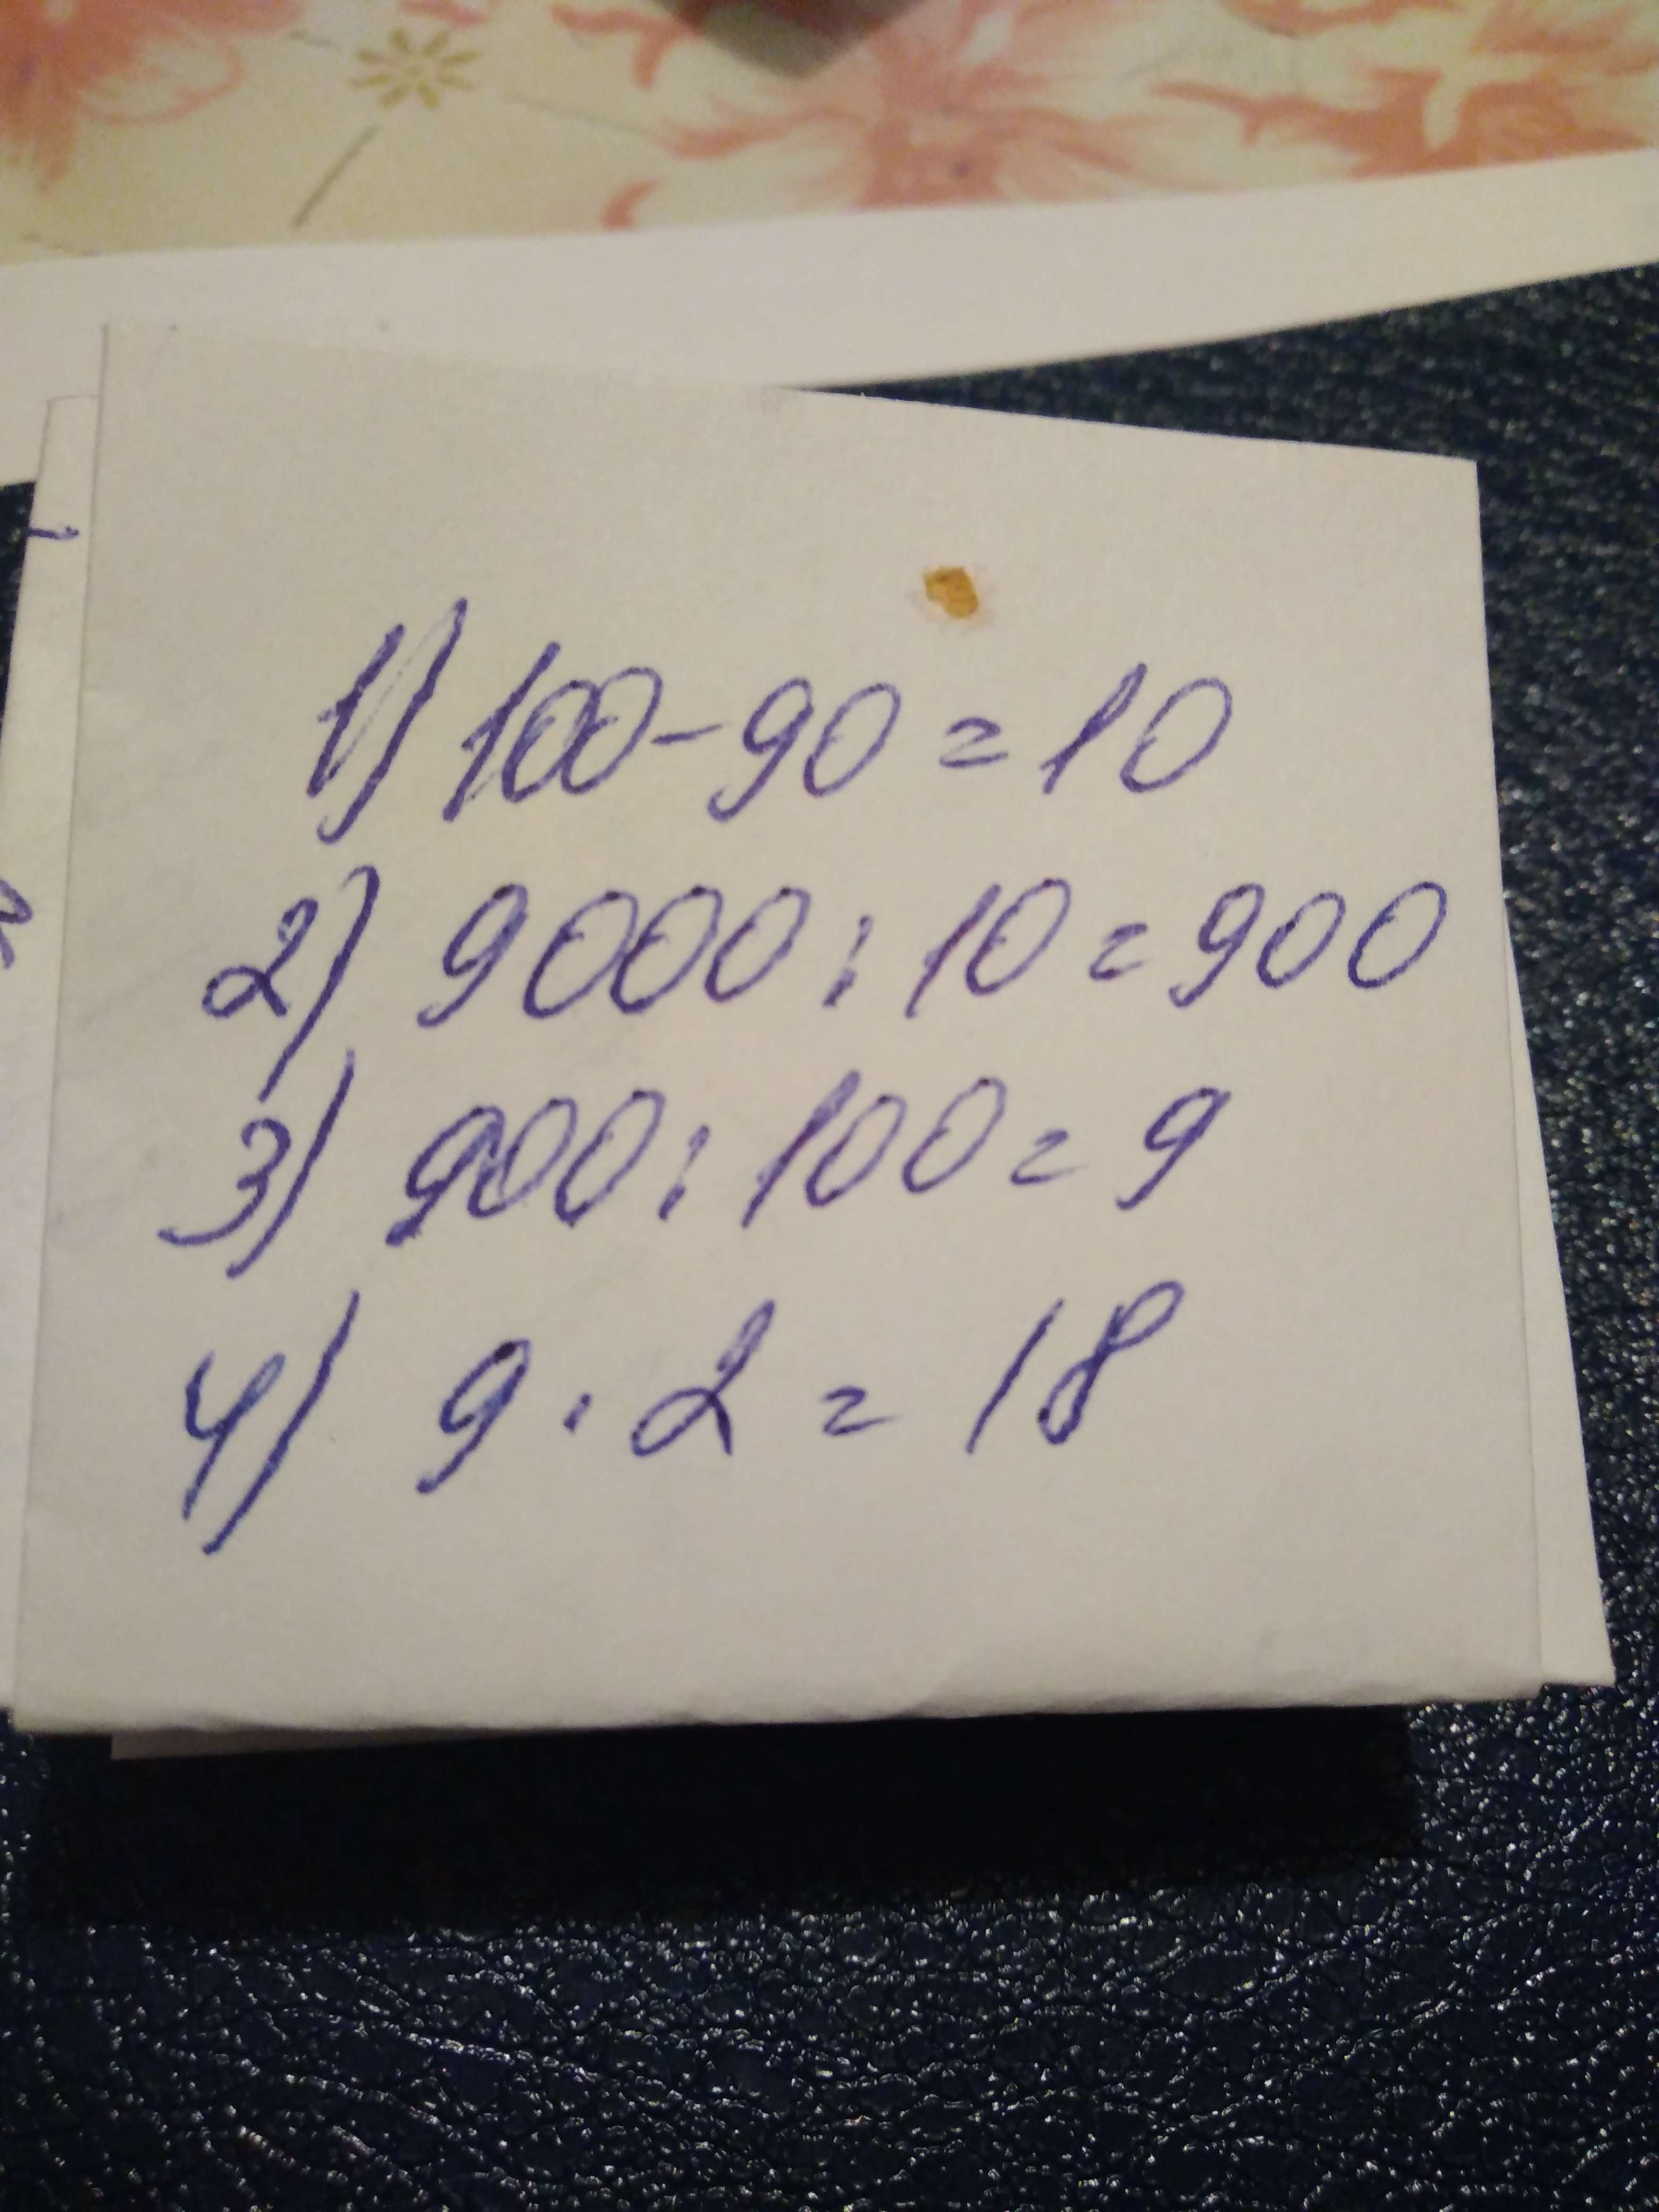 1) 100-90=10
2) 9000:10=900
3) 900:100=9
4) 9·2=18